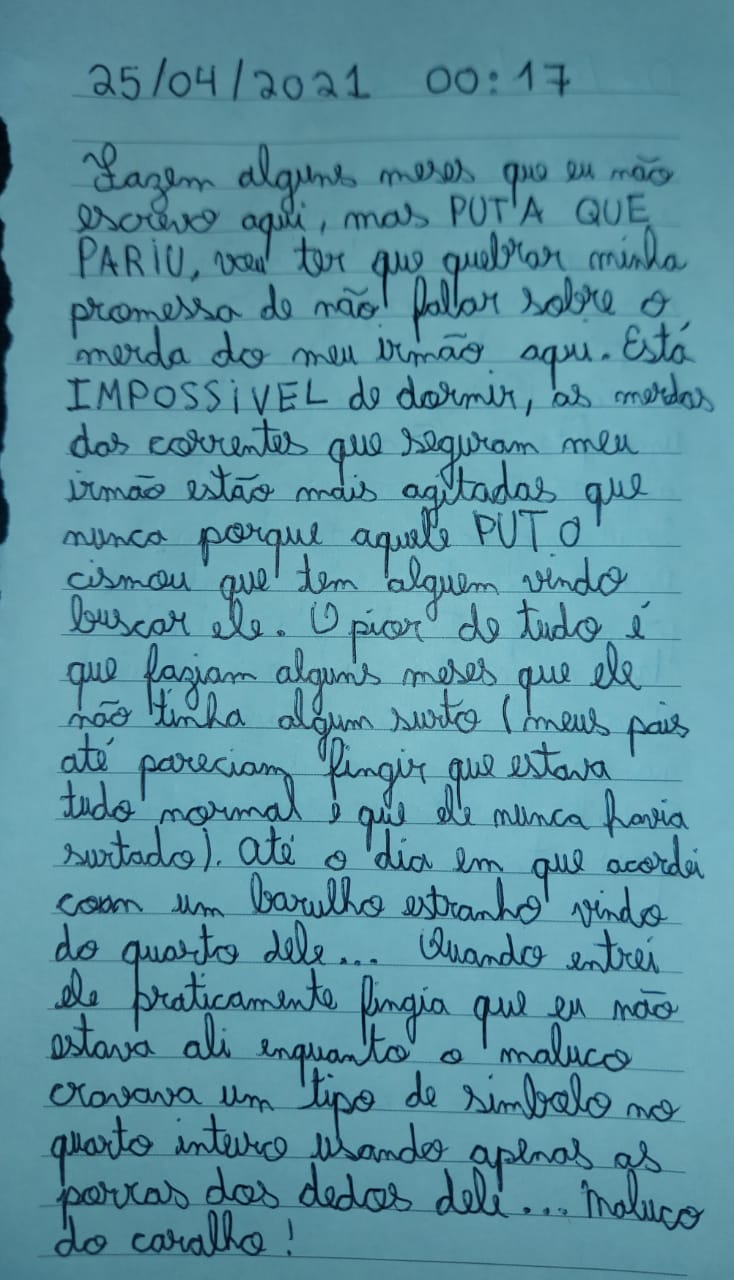 25/04/2021 00:17
Fazem alguns meses que eu não
escrevo aqui, mas PUTA QUE
PARIU, vou ter que quebrar minha
promessa de não falar sobre o
merda do meu irmão aqui. Está
IMPOSSíVEL de dormir, as merdas
das correntes que seguram meu
irmão estão mais agitadas que
nunca porque aquele PUTO
cismou que tem alguem vindo
buscar ele. O pior de tudo é
que faziam alguns meses que ele
não tinha algum surto (meus pais
até pareciam fingir que estava
tudo normal e que ele nunca havia
surtado). até o dia em que acordei
com um barulho estranho vindo
do quarto dele... Quando entrei
ele praticamente fingia que eu não
estava ali enquanto o maluco
cravava um tipo de simbolo no
quarto inteiro usando apenas as
porras dos dedos dele... Maluco
do caralho!